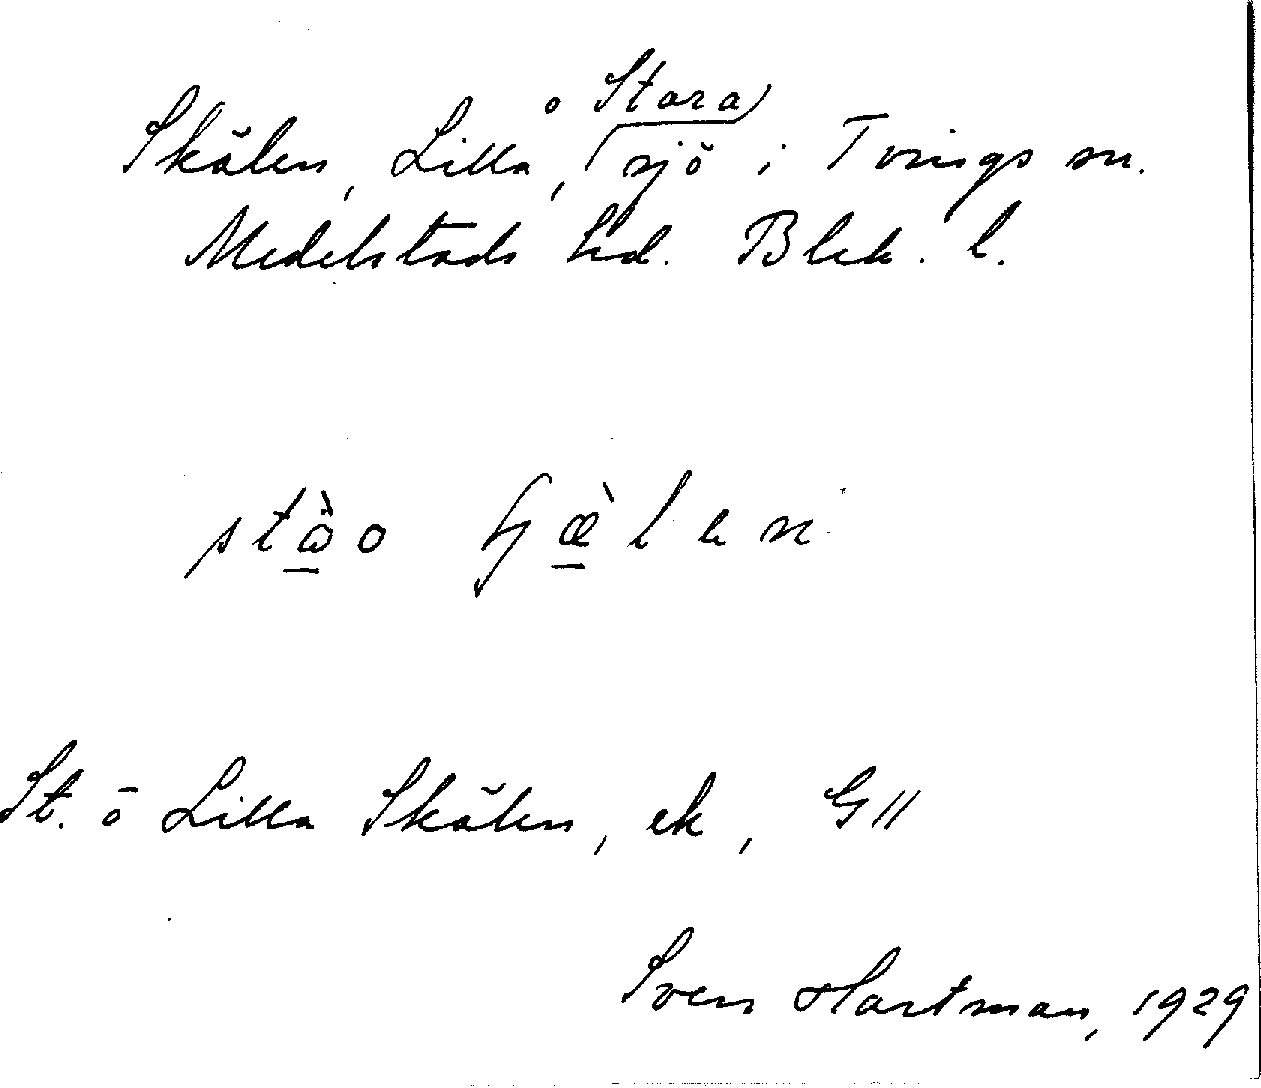 Skälen, Lilla o Stora, sjö i Tvings sn.
Medelstads hd. Blek. l.
St. o Lilla Skälen, ek, G11
Sven Hartman, 1929